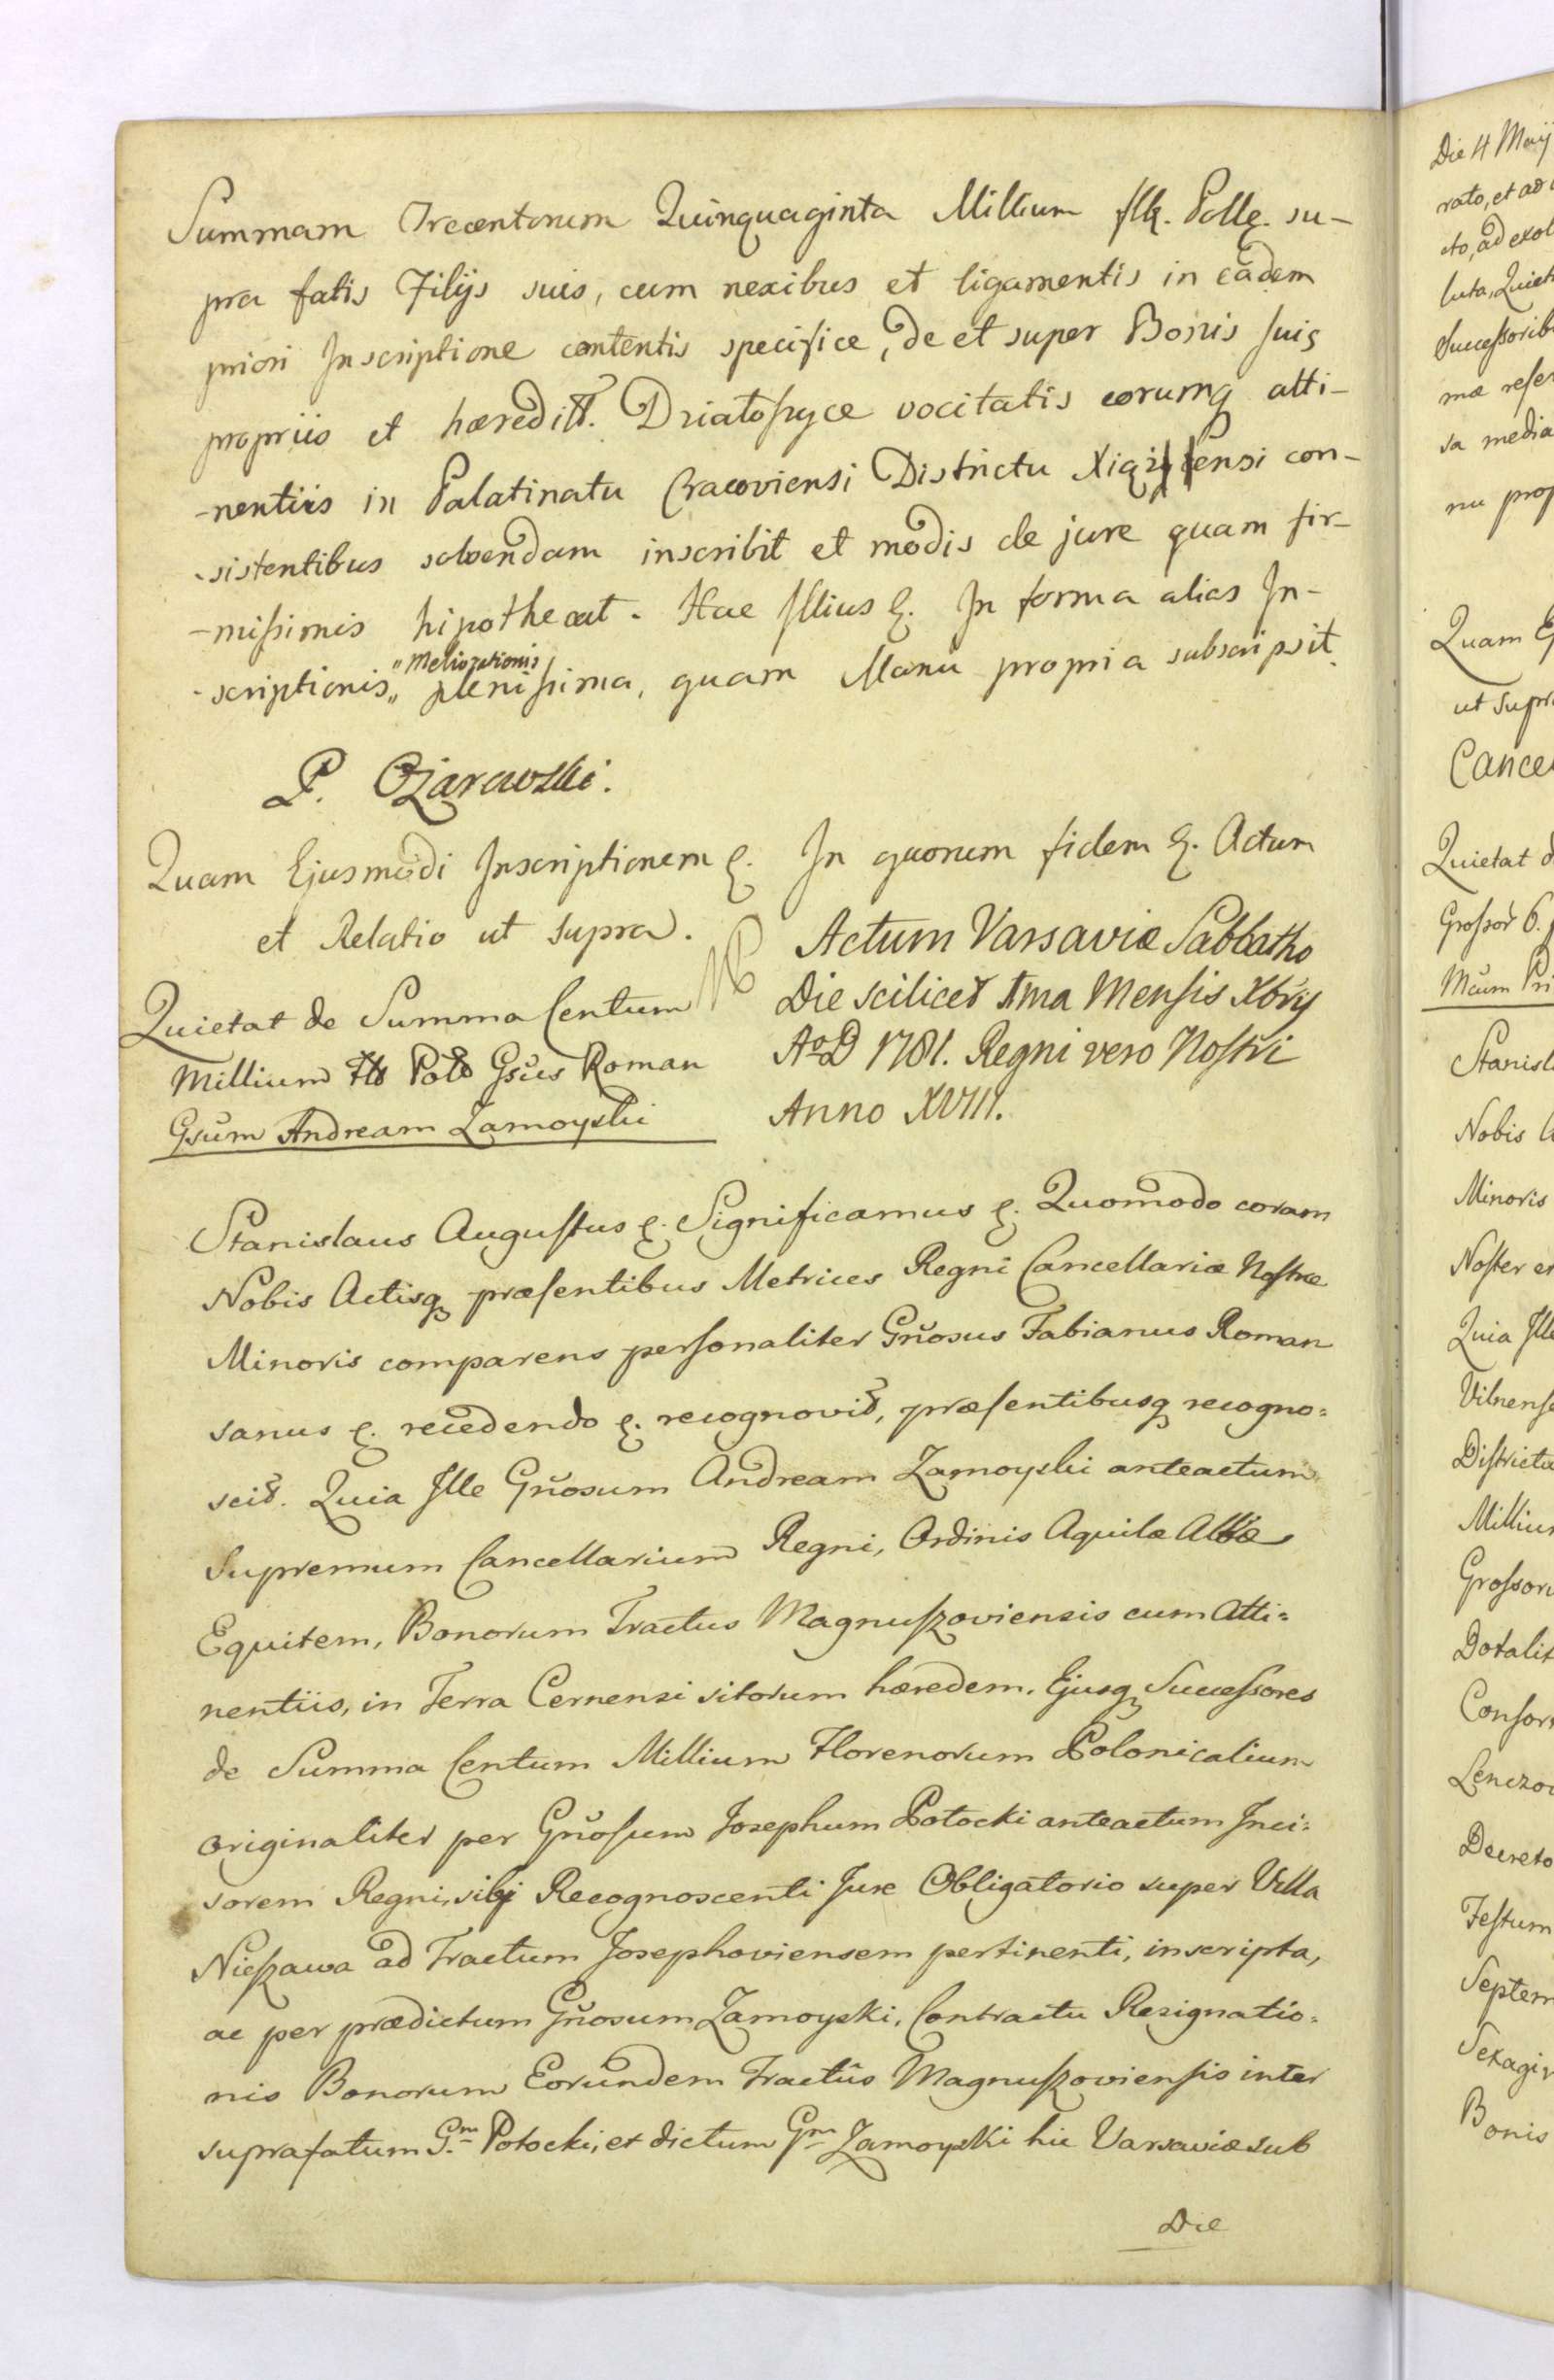 Summam Trecentorum Quinquaginta Millium fllr. Pollg. su-
pra fatis Filijs suis, cum nexibus et ligamentis in eadem
priori Inscriptione contentis specifice, de et super Bonis suis
propriis et hæreditt. Działoszyce vocitatis eorumq atti-
-nentiis in Palatinatu Cracoviensi Districtu Xiąż ensi con-
-sistentibus solvendam inscribit et modis de jure quam fir-
-missimis hipothecat. Hae Illius &. In forma alias In-
-scriptionis „ plenissima, quam Manu propria subscripsit.
„Meliorationis
P. Ożarowski.
Quam Ejusmodi Inscriptionem &. In quorum fidem &. Actum
et Relatio ut supra.
Actum Varsaviæ Sabbatho
Die scilicet 1ma Mensis Xbris
AoD 1781. Regni vero Nostri
Anno XVIII.
Quietat de Summa Centum
Millium fls Pols Gsus Roman
Gsum Andream Zamoyski
Stanislaus Augustus &. Significamus &. Quomodo coram
Nobis Actisq præsentibus Metrices Regni Cancellariæ Nostræ
Minoris comparens personaliter Gnosus Fabianus Roman
sanus &. recedendo &. recognovit, præsentibusq recogno=
scit. Quia Ille Gnosum Andream Zamoyski anteactum
Supremum Cancellarium Regni, Ordinis Aquilæ Albæ
Equitem, Bonorum Tractus Magnuszoviensis cum Atti=
nentiis, in Terra Cernensi sitorum hæredem. Ejusq Successores
de Summa Centum Millium Florenorum Polonicalium
originaliter per Gnosum Josephum Potocki anteactum Inci=
sorem Regni, sibi Recognoscenti Jure Obligatorio super Villa
Nieszawa ad Tractum Josephoviensem pertinenti, inscripta,
ac per prædictum Gnosum Zamoyski, Contractu Resignatio=
nis Bonorum Eorundem Tractus Magnuszoviensis inter
suprafatum Gm Potocki, et dictum Gm Zamoyski hic Varsaviæ sub
Die
Die 4 Maij
rato, et ad
cto, ad exol
luta, Quiet
Successorib
mæ refer
sa media
nu prop
Quam Ej
ut supr
Cance
Quietat d
Grossor 6.
Mcum Pri
Stanisl
Nobis
Minoris
Noster er
Quia Ille
Vilnens
Districtu
Milliu
Grossor
Dotalit
Consor
Lenczo
Decreto
Festum
Septem
Sexagi
Bonis